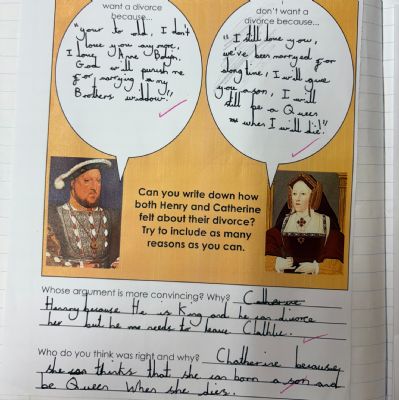 want a divorce
because...
"your to old, I don't
love you any more,
I love Anne Bolyn.
God will punish me
for marrying my
Brothers widdow."
I
don't want a
divorce because...
"I still love you,
we've been marryed for
along time, I will give
you a son, I will
still be a Queen
when I will die!"
Can you write down how
both Henry and Catherine
felt about their divorce?
Try to include as many
reasons as you can.
Whose argument is more convincing? Why? Catherine
Henry because He is King and he can divorce
her but he needs to leave
Who do you think was right and why? Chatherine because
she can thinks that she can born a son and
be Queen When she dies.